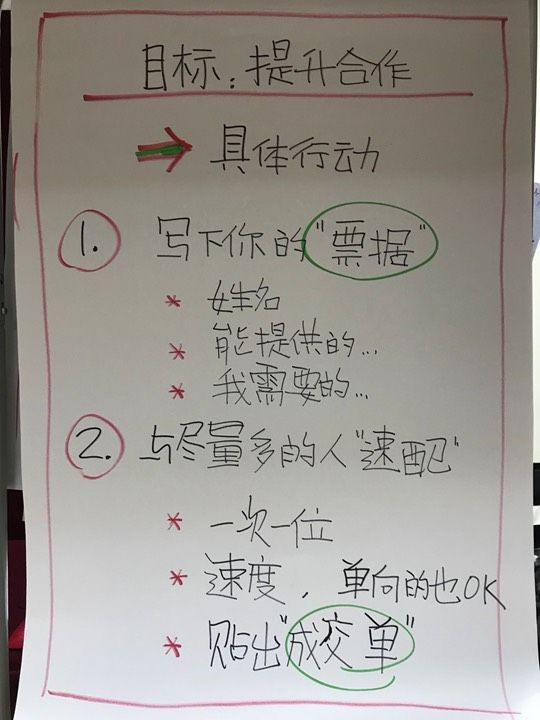 目标：提升合作
具体行动
1. 写下你的"票据"
* 姓名
* 能提供的...
* 我需要的...
2. 与尽量多的人"速配"
* 一次一位
* 速度，单向的也OK
* 贴出"成交单"